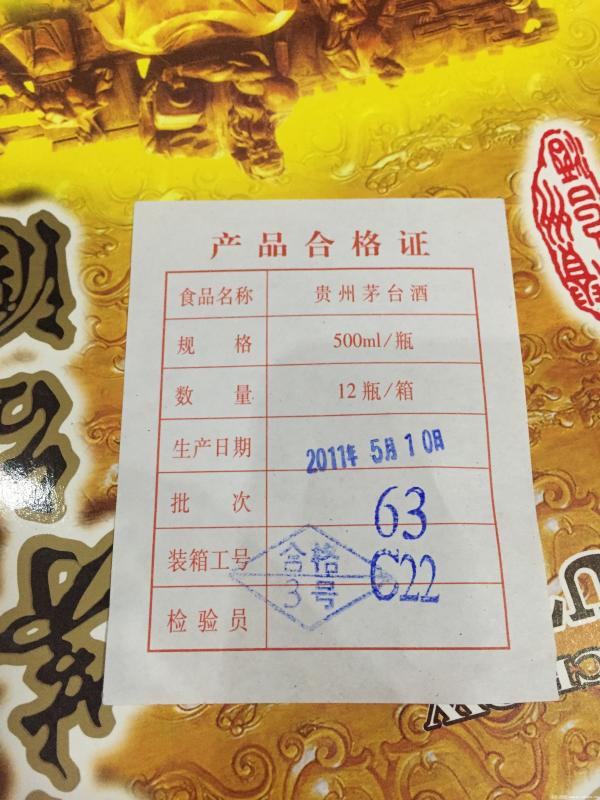 产品合格证
食品名称 贵州茅台酒
规 格 500ml/瓶
数 量 12瓶/箱
生产日期 2011年 5月 10日
批 次 63
装箱工号 C22
合格
3号
检验员